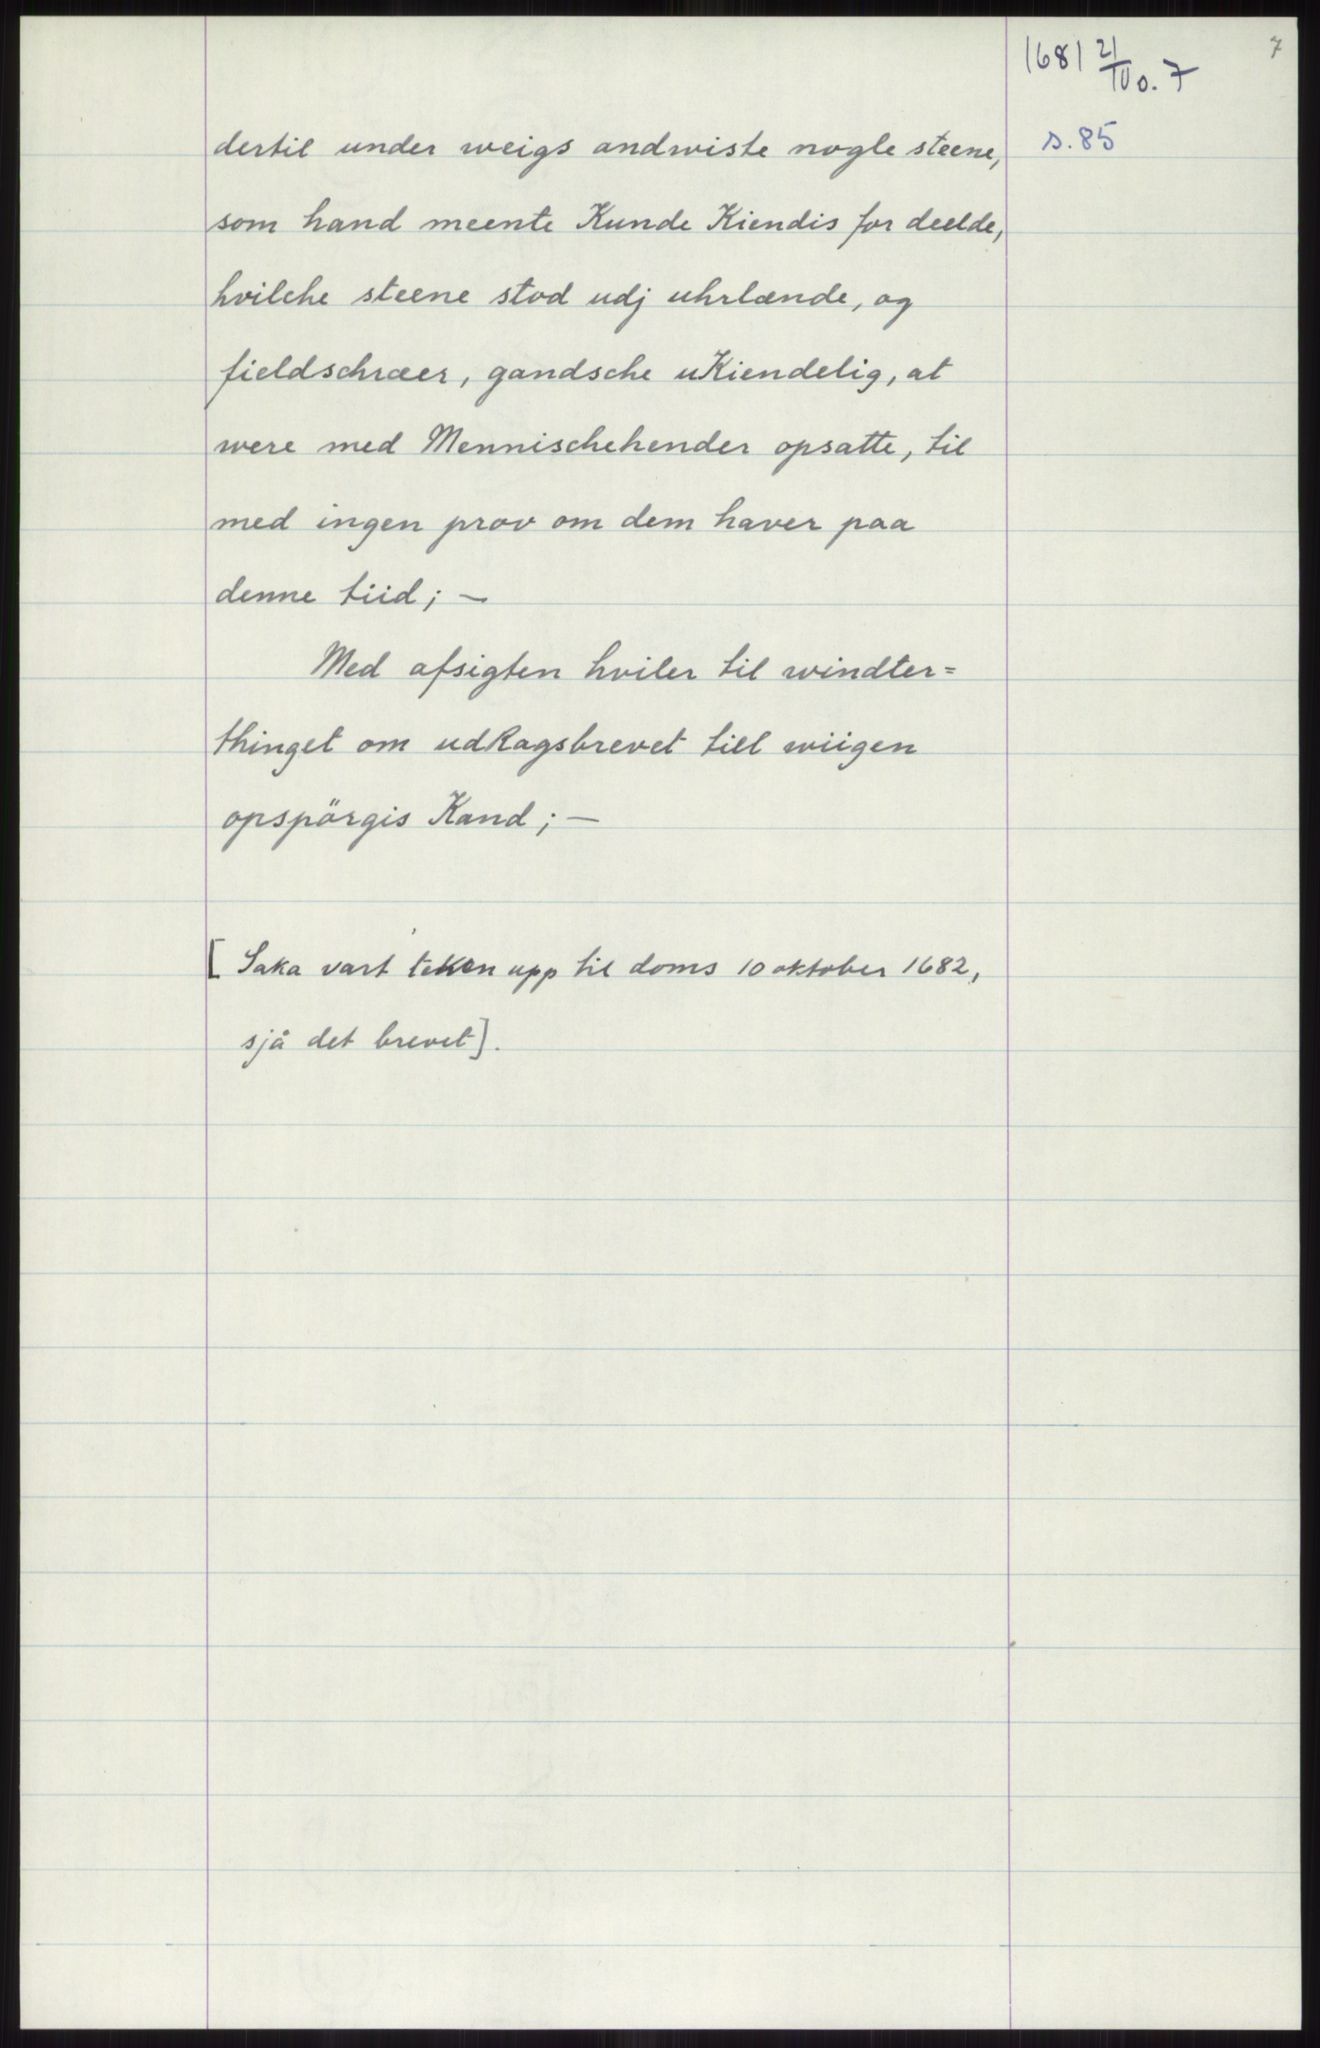 7
1681 21/10 o. 7
s. 85
dertil under weigs andwiste nogle steene,
som hand meente Kunde Kiendis for deelde,
hvilche steene stod udj uhrlænde, og
fieldschræer, gandsche uKiendelig, at
were med Mennischehender opsatte, til
med ingen prov om dem haver paa
denne tiid; —
Med afsigten hviler til windter=
thinget om udKagsbrevet till wiigen
opspörgis Kand; —
[Saka vart teken upp til doms 10 oktober 1682,
sjå det brevet].